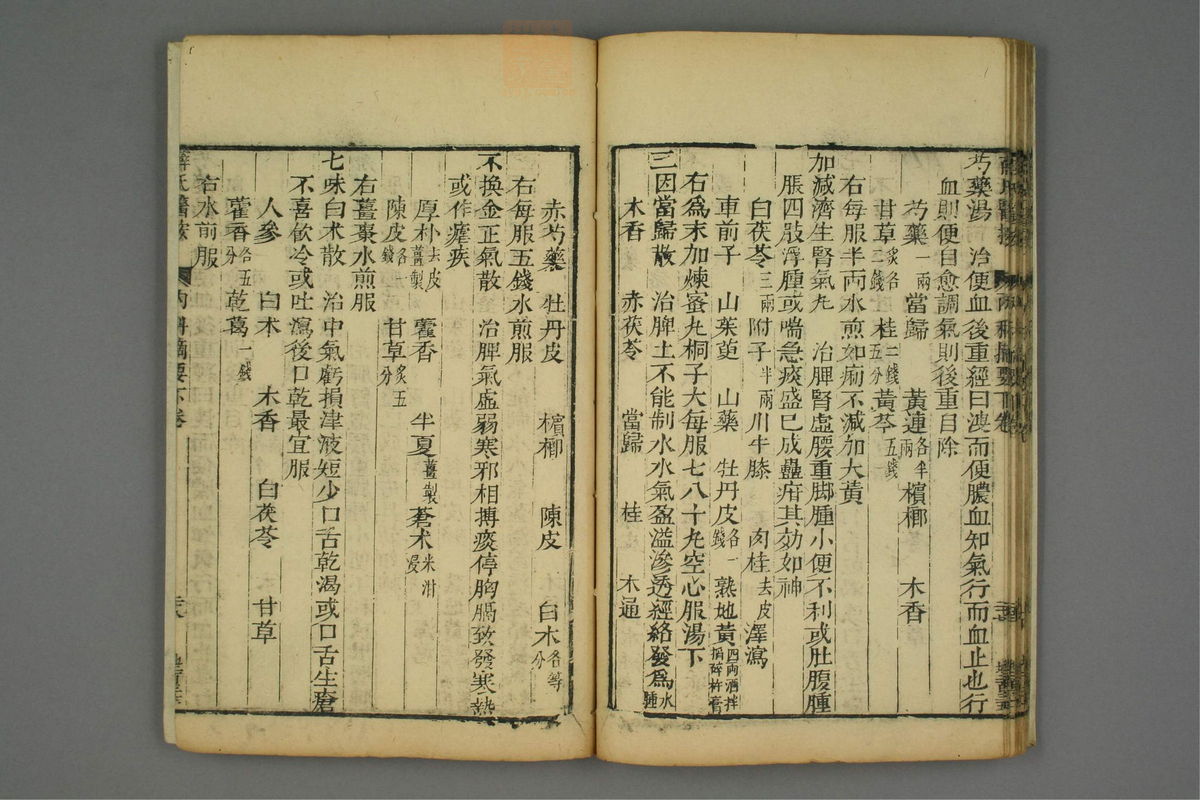 芍藥湯 治便血後重經曰溲而便膿血知氣行而血止也行
血則便自愈調氣則後重自除
芍藥一兩 當歸 黃連各半兩 檳榔 木香
甘草炙各二錢 桂二錢五分 黃芩五錢
右每服半兩水煎如痢不減加大黃
加減濟生腎氣丸 治脾腎虛腰重脚腫小便不利或肚腹腫
脹四肢浮腫或喘急痰盛已成蠱疳其効如神
白茯苓三兩 附子半兩 川牛膝 肉桂去皮 澤瀉
車前子 山茱萸 山藥 牡丹皮各一錢 熟地黃四兩酒拌搗碎杵膏
右為末加煉蜜丸桐子大每服七八十丸空心服湯下
三因當歸散 治脾土不能制水水氣盈溢滲透經絡發為水腫
木香 赤茯苓 當歸 桂 木通
赤芍藥 牡丹皮 檳榔 陳皮 白木各等分
右每服五錢水煎服
不換金正氣散 治脾氣虛弱寒邪相搏痰停胸膈致發寒熱
或作瘧疾
厚朴去皮薑製 藿香 半夏薑製 蒼朮米泔浸
陳皮各錢 甘草炙五分
右薑棗水煎服
七味白朮散 治中氣虧損津液短少口舌乾渴或口舌生瘡
不喜飲冷或吐瀉後口乾最宜服
人參 白木 木香 白茯苓 甘草
藿香各五分 乾葛一錢
右水煎服
薛氏醫案 內科摘要下卷